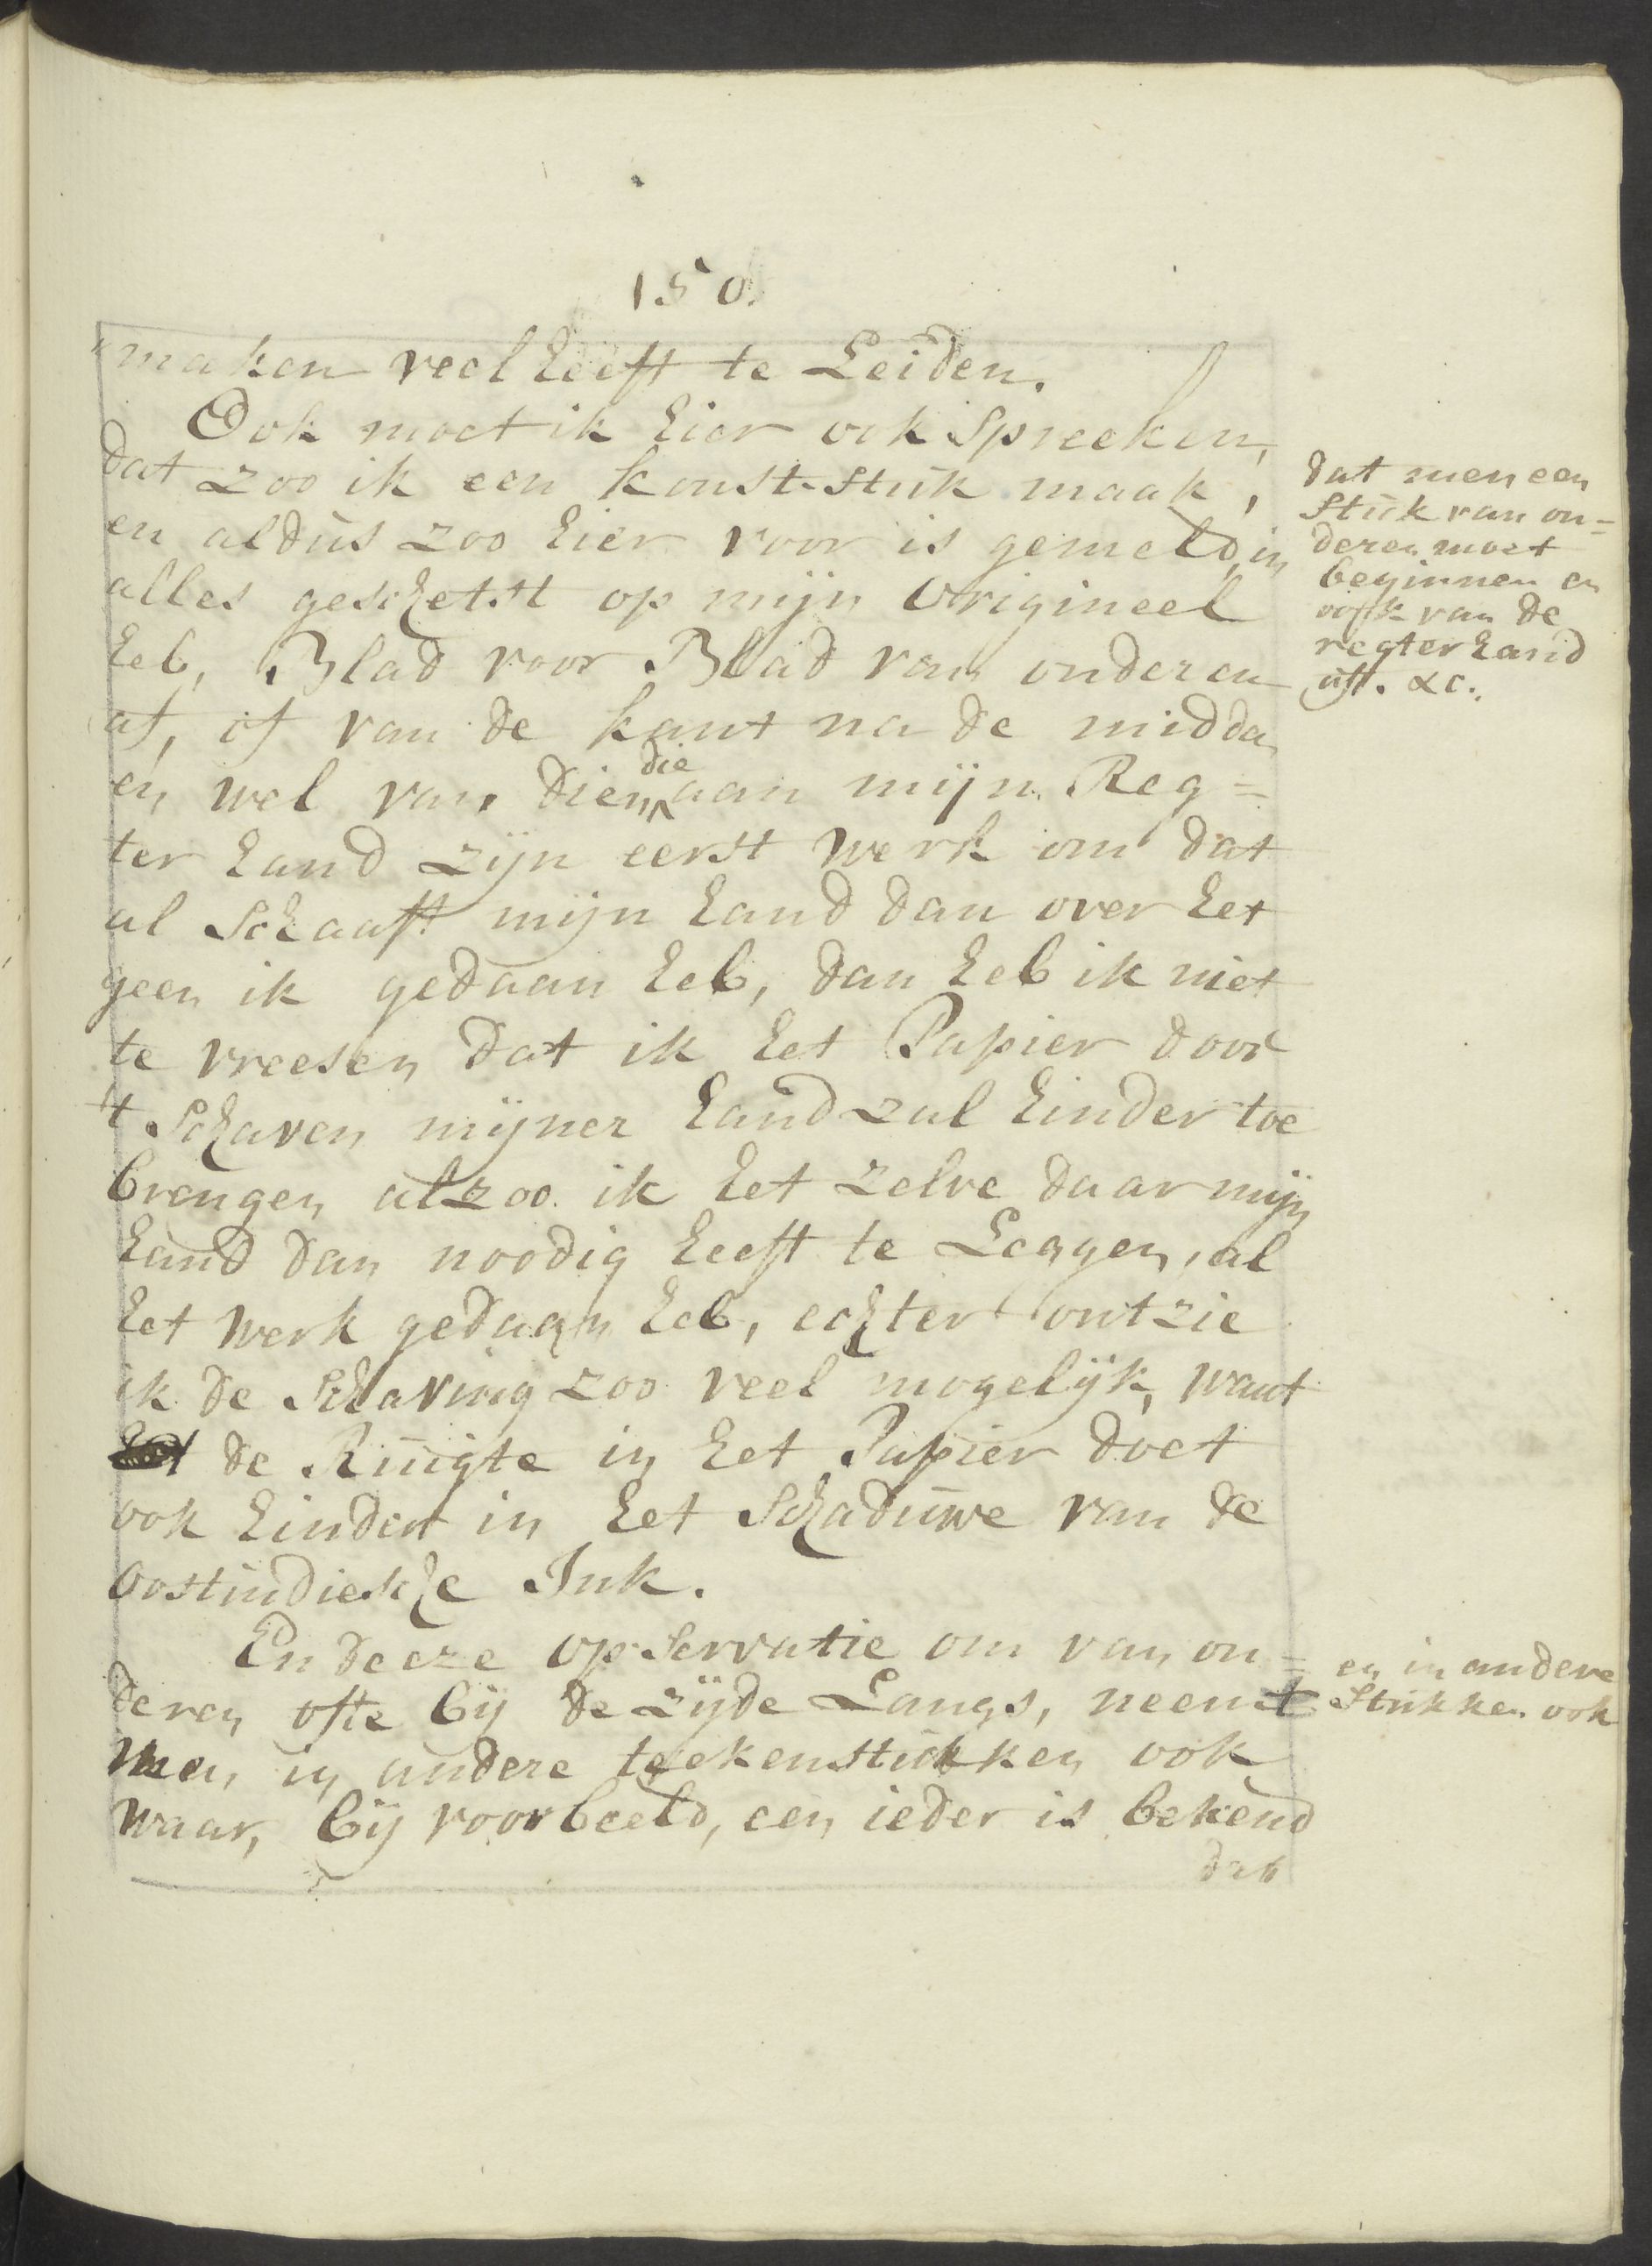 150.
"maken veel heeft te Leiden.
Ook moet ik hier ook Spreeken,
dat zoo ik een konst-stuk maak,
en aldus zoo hier voor is gemeld, in
alles geschetst op mijn Origineel
heb, Blad voor Blad van onderen
af, of van de kant na de midden
en wel van dien die aan mijn Reg=
ter hand zijn eerst werk om dat
al Schaaft mijn hand dan over het
geen ik gedaan heb, dan heb ik niet
te vreesen dat ik het Papier door
't Schaven mijner hand zal hinder toe
brengen alzoo ik het zelve daar mijn
hand dan noodig heeft te Leggen, al
het werk gedaan heb, echter ontzie
ik de Schaving zoo veel mogelijk, want
de Ruigte in het Papier doet
ook hinder in het Schaduwe van de
oostindiesche Ink.
En deeze opservatie om van on=
deren ofte bij de zijde Langs, neemt
men in andere teekenstukken ook
waar, bij voorbeeld, een ieder is bekend
dat
dat men een
Stuk van on=
deren moet
beginnen en
ook van de
regter hand
aft. &c.
en in andere
Stukken ook